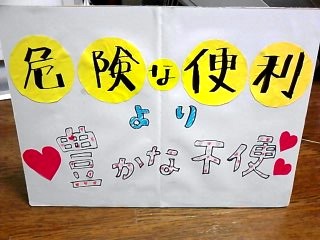 危険な便利
より
豊かな不便